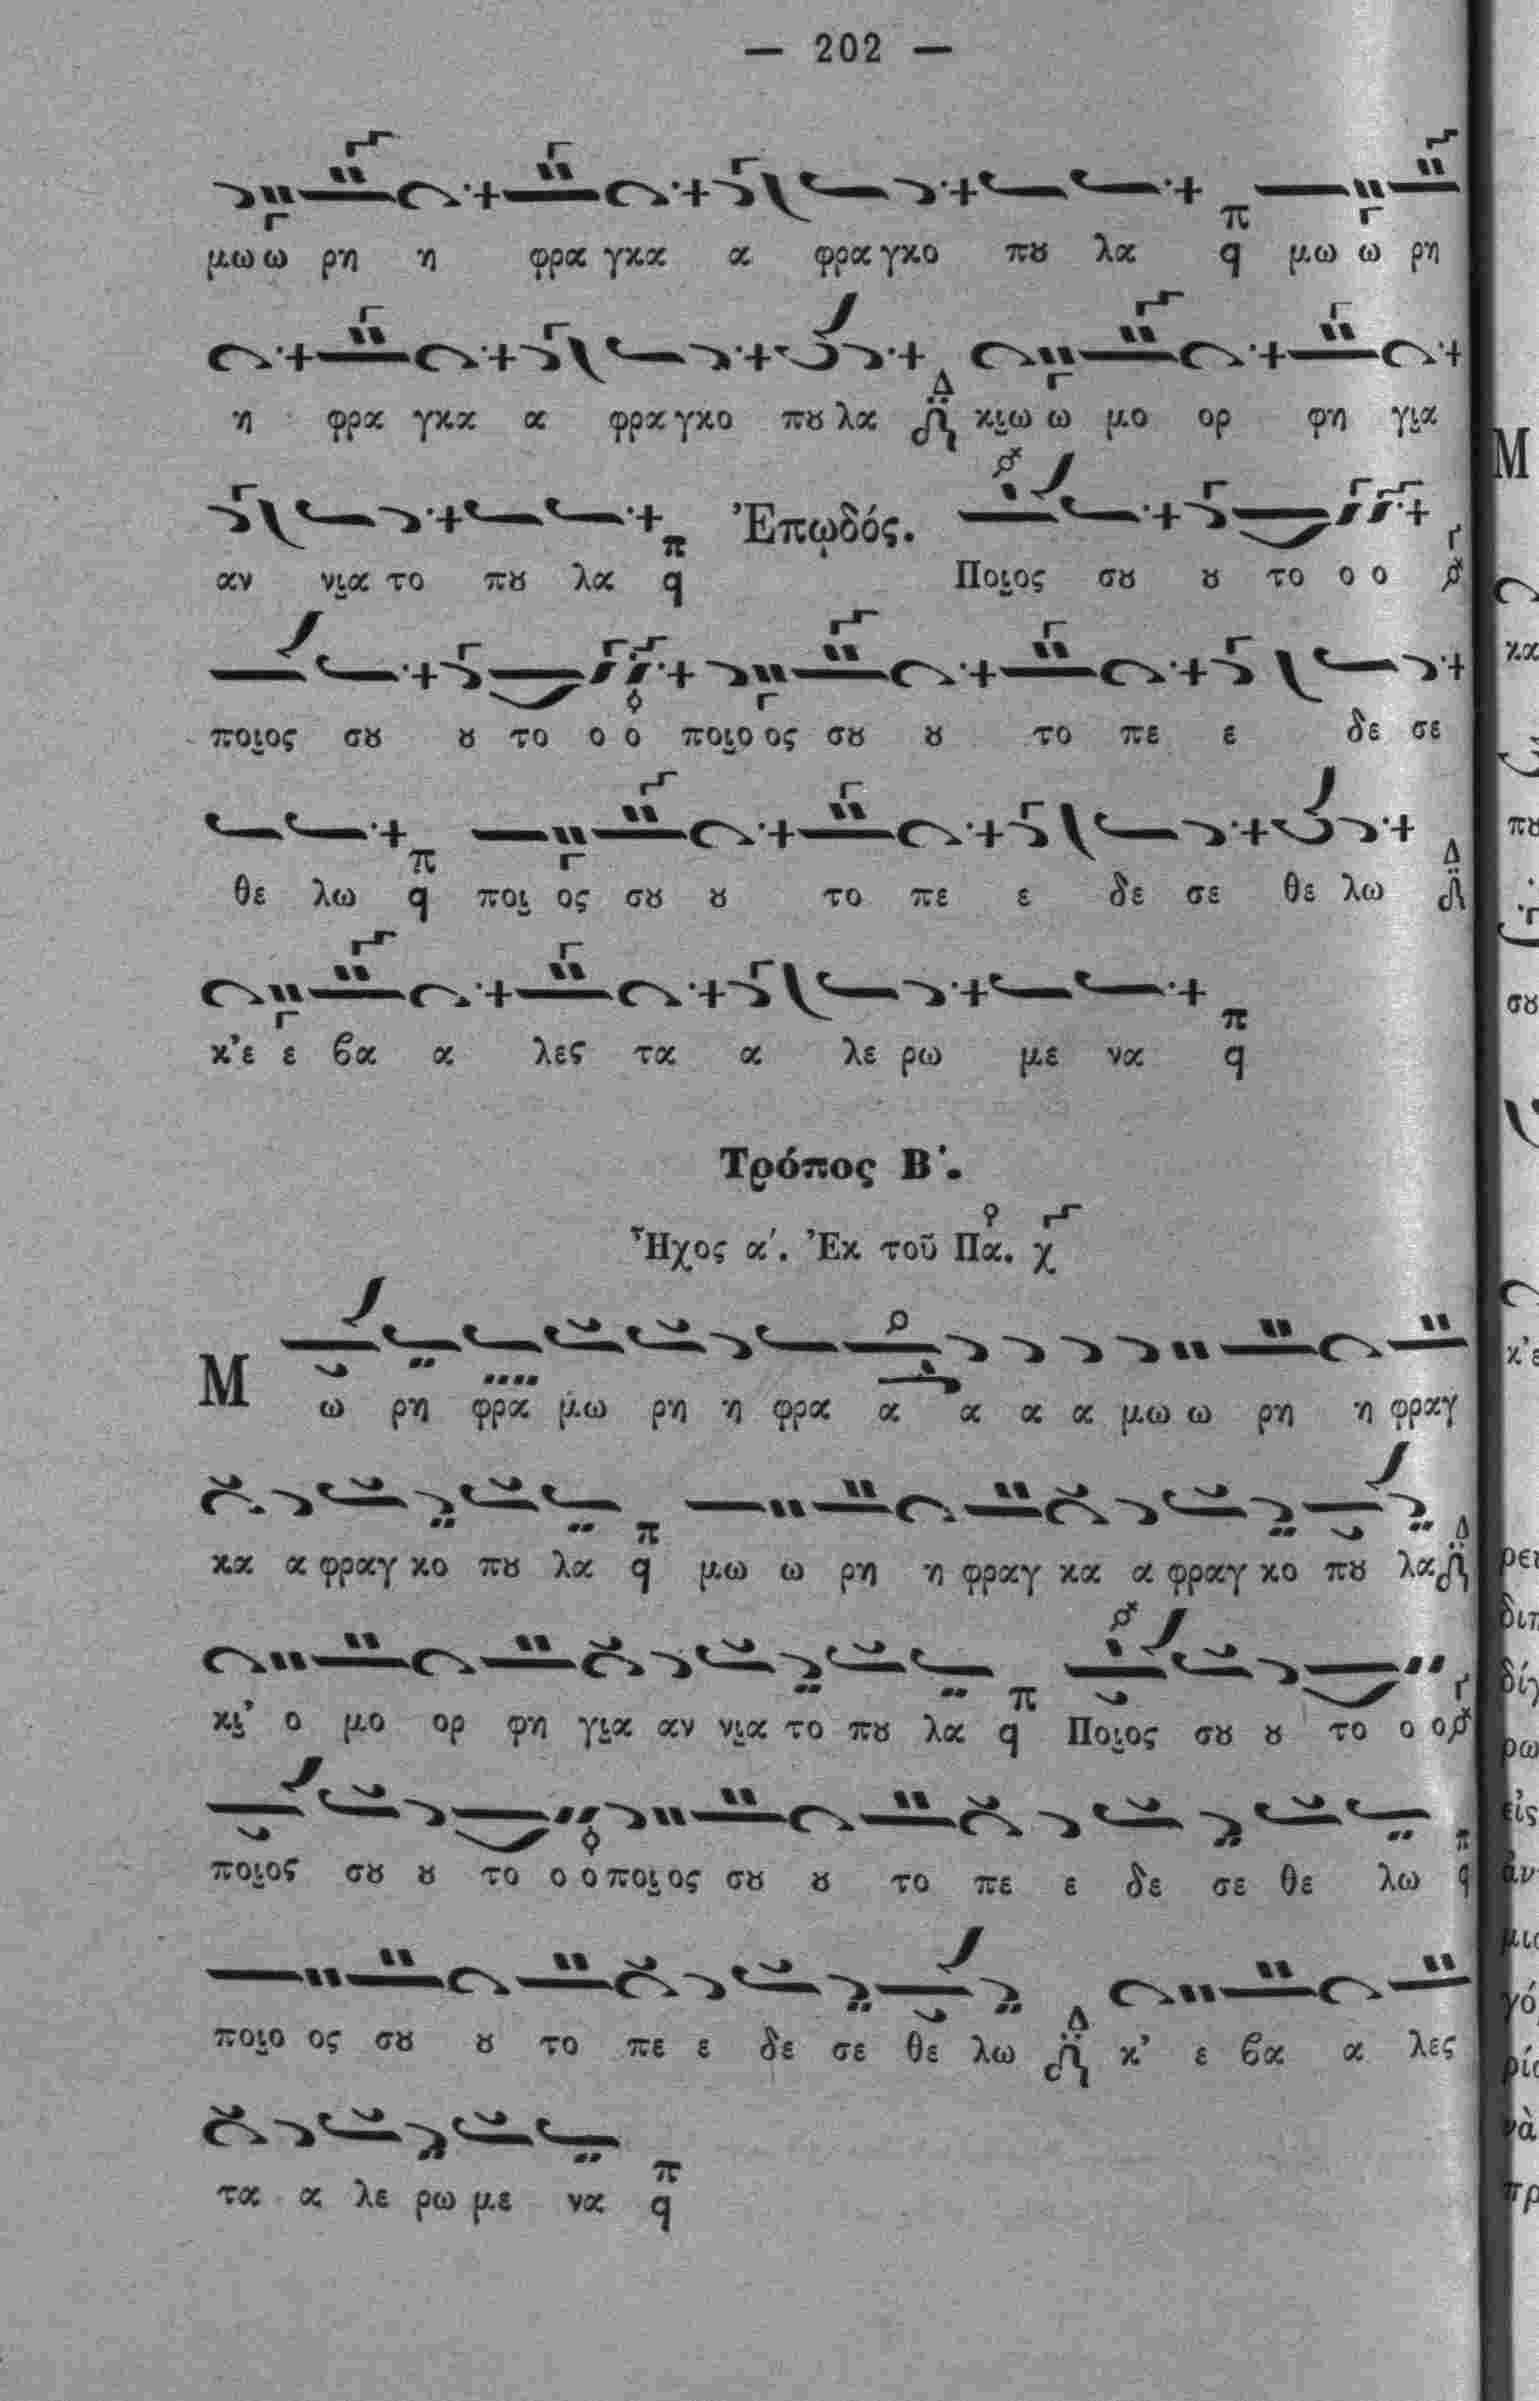 — 202 —
μω ω ρη η φρα γκα α φρα γκο πȣ λα π q μω ω ρη
η φρα γκα α φρα γκο πȣ λα Δ κι̯ω ω μο ορ φη γι̯α
αν νι̯α το πȣ λα π q Ἐπῳδός. Ποι̯ος σȣ ȣ το ο ο
ποι̯ος σȣ ȣ το ο ο ποι̯ο ος σȣ ȣ το πε ε δε σε
θε λω π q ποι̯ ος σȣ ȣ το πε ε δε σε θε λω Δ
κ’ε ε ϐα α λες τα α λε ρω με να π q
Τρόπος Β΄.
Ἦχος α΄. Ἐκ τοῦ Πα. χ
Μ ω ρη φρα μω ρη η φρα α α α α μω ω ρη η φραγ
κα α φραγ κο πȣ λα π q μω ω ρη η φραγ κα α φραγ κο πȣ λα Δ
κι̯’ ο μο ορ φη γι̯α αν νι̯α το πȣ λα π q Ποι̯ος σȣ ȣ το ο ο
ποι̯ος σȣ ȣ το ο ο ποι̯ ος σȣ ȣ το πε ε δε σε θε λω π q
ποι̯ο ος σȣ ȣ το πε ε δε σε θε λω Δ κ’ ε ϐα α λες
τα α λε ρω με να π q